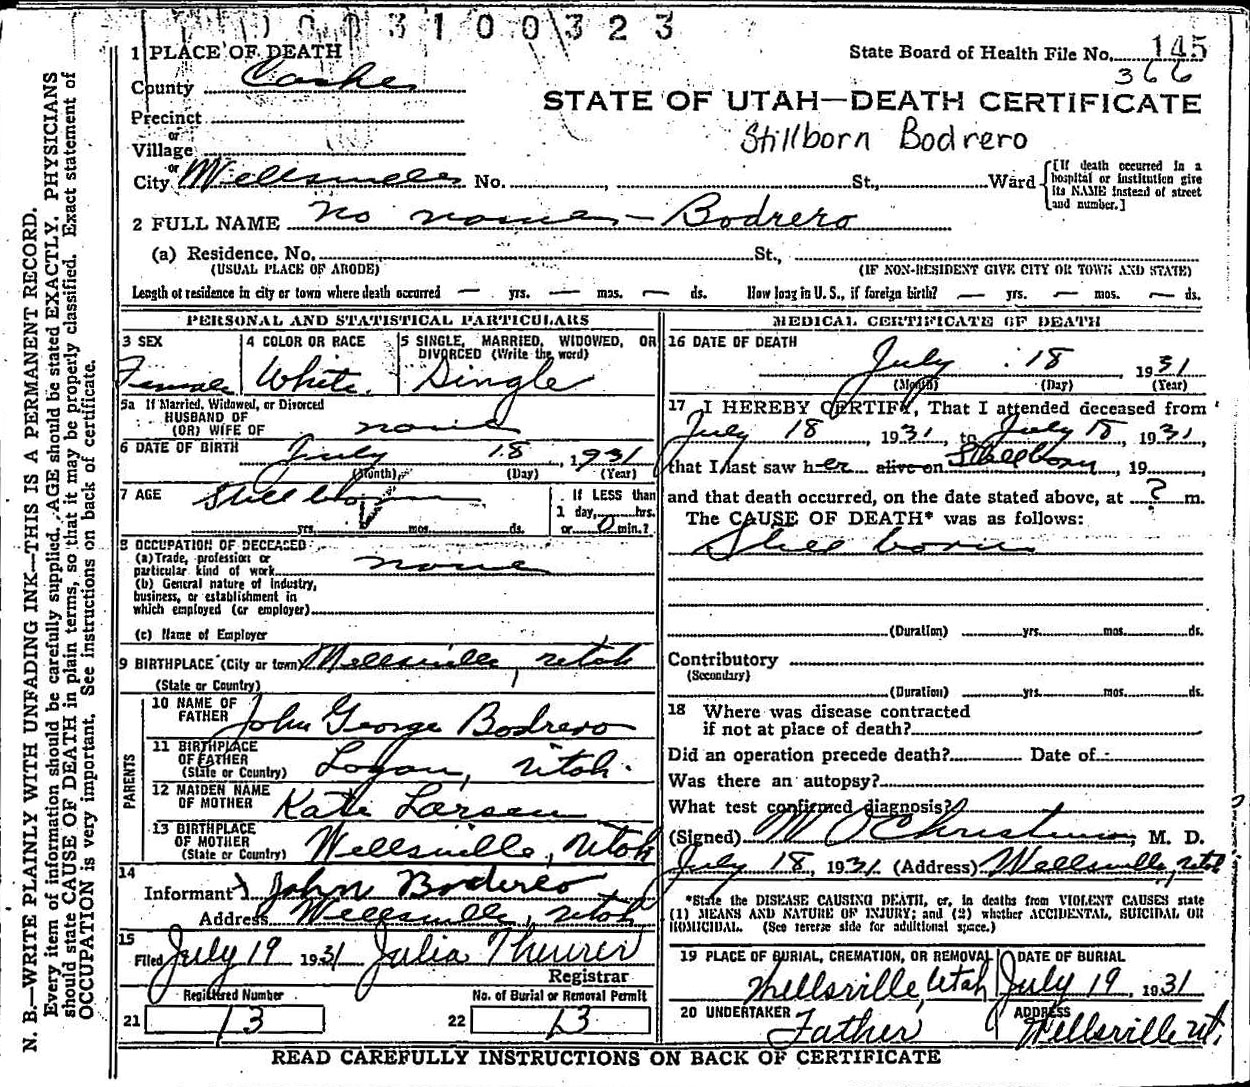 0 0 3 1 0 0 3 2 3
1 PLACE OF DEATH
State Board of Health File No. 145
366
County Cache
STATE OF UTAH—DEATH CERTIFICATE
Precinct
Stillborn Bodrero
or
Village
or
City Wellsville No. , St., Ward
[If death occurred in a hospital or institution give its NAME instead of street and number.]
2 FULL NAME no name - Bodrero
(a) Residence. No. St.,
(USUAL PLACE OF ABODE) (IF NON-RESIDENT GIVE CITY OR TOWN AND STATE)
Length of residence in city or town where death occurred — yrs. — mos. — ds. How long in U. S., if foreign birth? — yrs. — mos. — ds.
PERSONAL AND STATISTICAL PARTICULARS
3 SEX Female
4 COLOR OR RACE White.
5 SINGLE, MARRIED, WIDOWED, OR DIVORCED (Write the word) Single
5a If Married, Widowed, or Divorced
HUSBAND OF
(OR) WIFE OF none
6 DATE OF BIRTH July 18, 1931
(Month) (Day) (Year)
7 AGE Still born
yrs. mos. ds.
If LESS than
1 day, hrs.
or 0 min.?
8 OCCUPATION OF DECEASED
(a) Trade, profession or
particular kind of work none
(b) General nature of industry,
business, or establishment in
which employed (or employer)
(c) Name of Employer
9 BIRTHPLACE (City or town) Wellsville, Utah
(State or Country)
PARENTS
10 NAME OF FATHER John George Bodrero
11 BIRTHPLACE OF FATHER (State or Country) Logan, Utah.
12 MAIDEN NAME OF MOTHER Kate Larsen
13 BIRTHPLACE OF MOTHER (State or Country) Wellsville, Utah
14
Informant John Bodrero
Address Wellsville, Utah
15
Filed July 19 1931 Julia Theurer
Registrar
Registered Number
21 13
No. of Burial or Removal Permit
22 13
MEDICAL CERTIFICATE OF DEATH
16 DATE OF DEATH
July 18 1931
(Month) (Day) (Year)
17 I HEREBY CERTIFY, That I attended deceased from
July 18 1931, to July 18, 1931,
that I last saw her alive on Stillborn, 19
and that death occurred, on the date stated above, at ? m.
The CAUSE OF DEATH* was as follows:
Still born
(Duration) yrs. mos. ds.
Contributory
(Secondary)
(Duration) yrs. mos. ds.
18 Where was disease contracted
if not at place of death?
Did an operation precede death? Date of
Was there an autopsy?
What test confirmed diagnosis?
(Signed) M O Christensen, M. D.
July 18, 1931 (Address) Wellsville, Utah
*State the DISEASE CAUSING DEATH, or, in deaths from VIOLENT CAUSES state
(1) MEANS AND NATURE OF INJURY; and (2) whether ACCIDENTAL, SUICIDAL OR
HOMICIDAL. (See reverse side for additional space.)
19 PLACE OF BURIAL, CREMATION, OR REMOVAL
Wellsville, Utah
DATE OF BURIAL
July 19, 1931
20 UNDERTAKER
Father
ADDRESS
Wellsville Ut.
READ CAREFULLY INSTRUCTIONS ON BACK OF CERTIFICATE
N. B.—WRITE PLAINLY WITH UNFADING INK—THIS IS A PERMANENT RECORD.
Every item of information should be carefully supplied. AGE should be stated EXACTLY. PHYSICIANS
should state CAUSE OF DEATH in plain terms, so that it may be properly classified. Exact statement of
OCCUPATION is very important. See instructions on back of certificate.